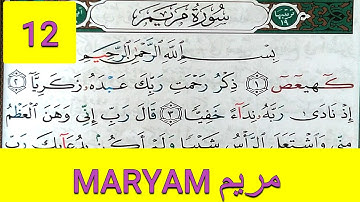 12
سُورَةُ مَرْيَمَ
ترتيبها
١٩
بِسْمِ اللَّهِ الرَّحْمَٰنِ الرَّحِيمِ
كٓهيعٓصٓ ۝١ ذِكْرُ رَحْمَتِ رَبِّكَ عَبْدَهُۥ زَكَرِيَّآ ۝٢
إِذْ نَادَىٰ رَبَّهُۥ نِدَآءً خَفِيًّا ۝٣ قَالَ رَبِّ إِنِّى وَهَنَ ٱلْعَظْمُ
مِنِّى وَٱشْتَعَلَ ٱلرَّأْسُ شَيْبًا وَلَمْ أَكُنۢ بِدُعَآئِكَ رَبِّ
MARYAM مريم